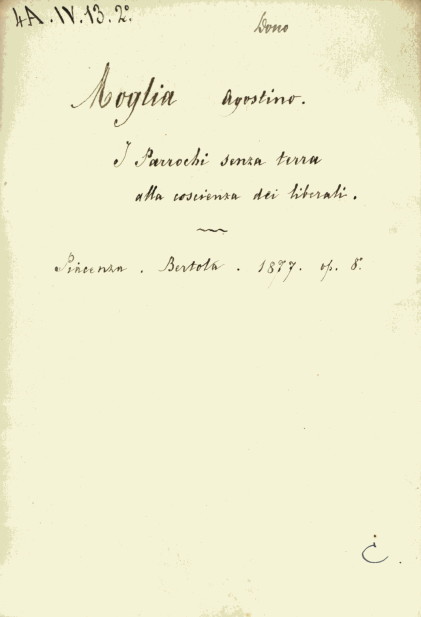 4A.IV.13.2º.
Dono
Moglia Agostino.
I Parrochi senza terra
alla coscienza dei liberali.
Piacenza. Bertola. 1877. op. 8º.
C.